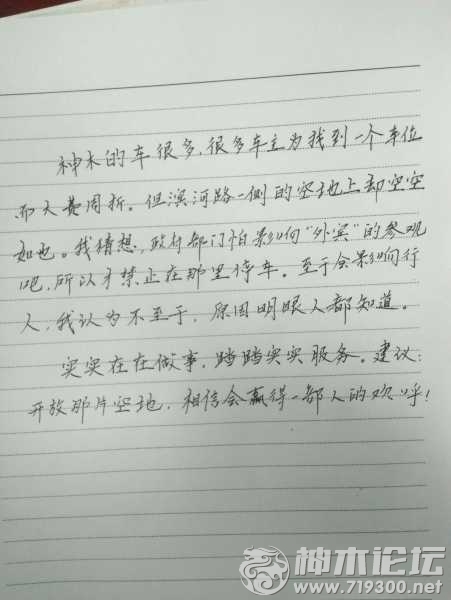 神木的车很多，很多车主为找到一个车位
而大费周折。但滨河路一侧的空地上却空空
如也。我猜想，政府部门怕影响"外宾"的参观
吧，所以才禁止在那里停车。至于会影响行
人，我认为不至于，原因明眼人都知道。
实实在在做事，踏踏实实服务。建议：
开放那片空地，相信会赢得一部人的欢呼！
神木论坛
www.719300.net